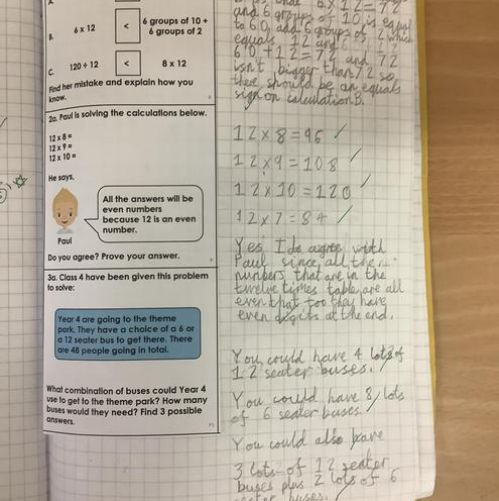 6 x 12
<
6 groups of 10 +
6 groups of 2
B.
120 ÷ 12
<
8 x 12
C.
Find her mistake and explain how you
know.
2a. Paul is solving the calculations below.
12 x 8 =
12 x 9 =
12 x 10 =
He says,
All the answers will be
even numbers
because 12 is an even
number.
Paul
Do you agree? Prove your answer.
3a. Class 4 have been given this problem
to solve:
Year 4 are going to the theme
park. They have a choice of a 6 or
a 12 seater bus to get there. There
are 48 people going in total.
What combination of buses could Year 4
use to get to the theme park? How many
buses would they need? Find 3 possible
answers.
that 6x12=72
and 6 groups of 10 is equal
to 60 add 6 groups of 2 which
equals 12 and
60+12=72 and 72
isn't bigger than 72 so
there should be an equals
sign on calculation B.
12x8=96
12x9=108
12x10=120
12x7=84
Yes I do agree with
Paul since all the
numbers that are in the
twelve times table are all
even that too they have
even digits at the end.
You could have 4 lots of
12 seater buses.
You could have 8 lots
of 6 seater buses.
You could also have
3 lots of 12 seater
buses plus 2 lots of 6
seater buses.